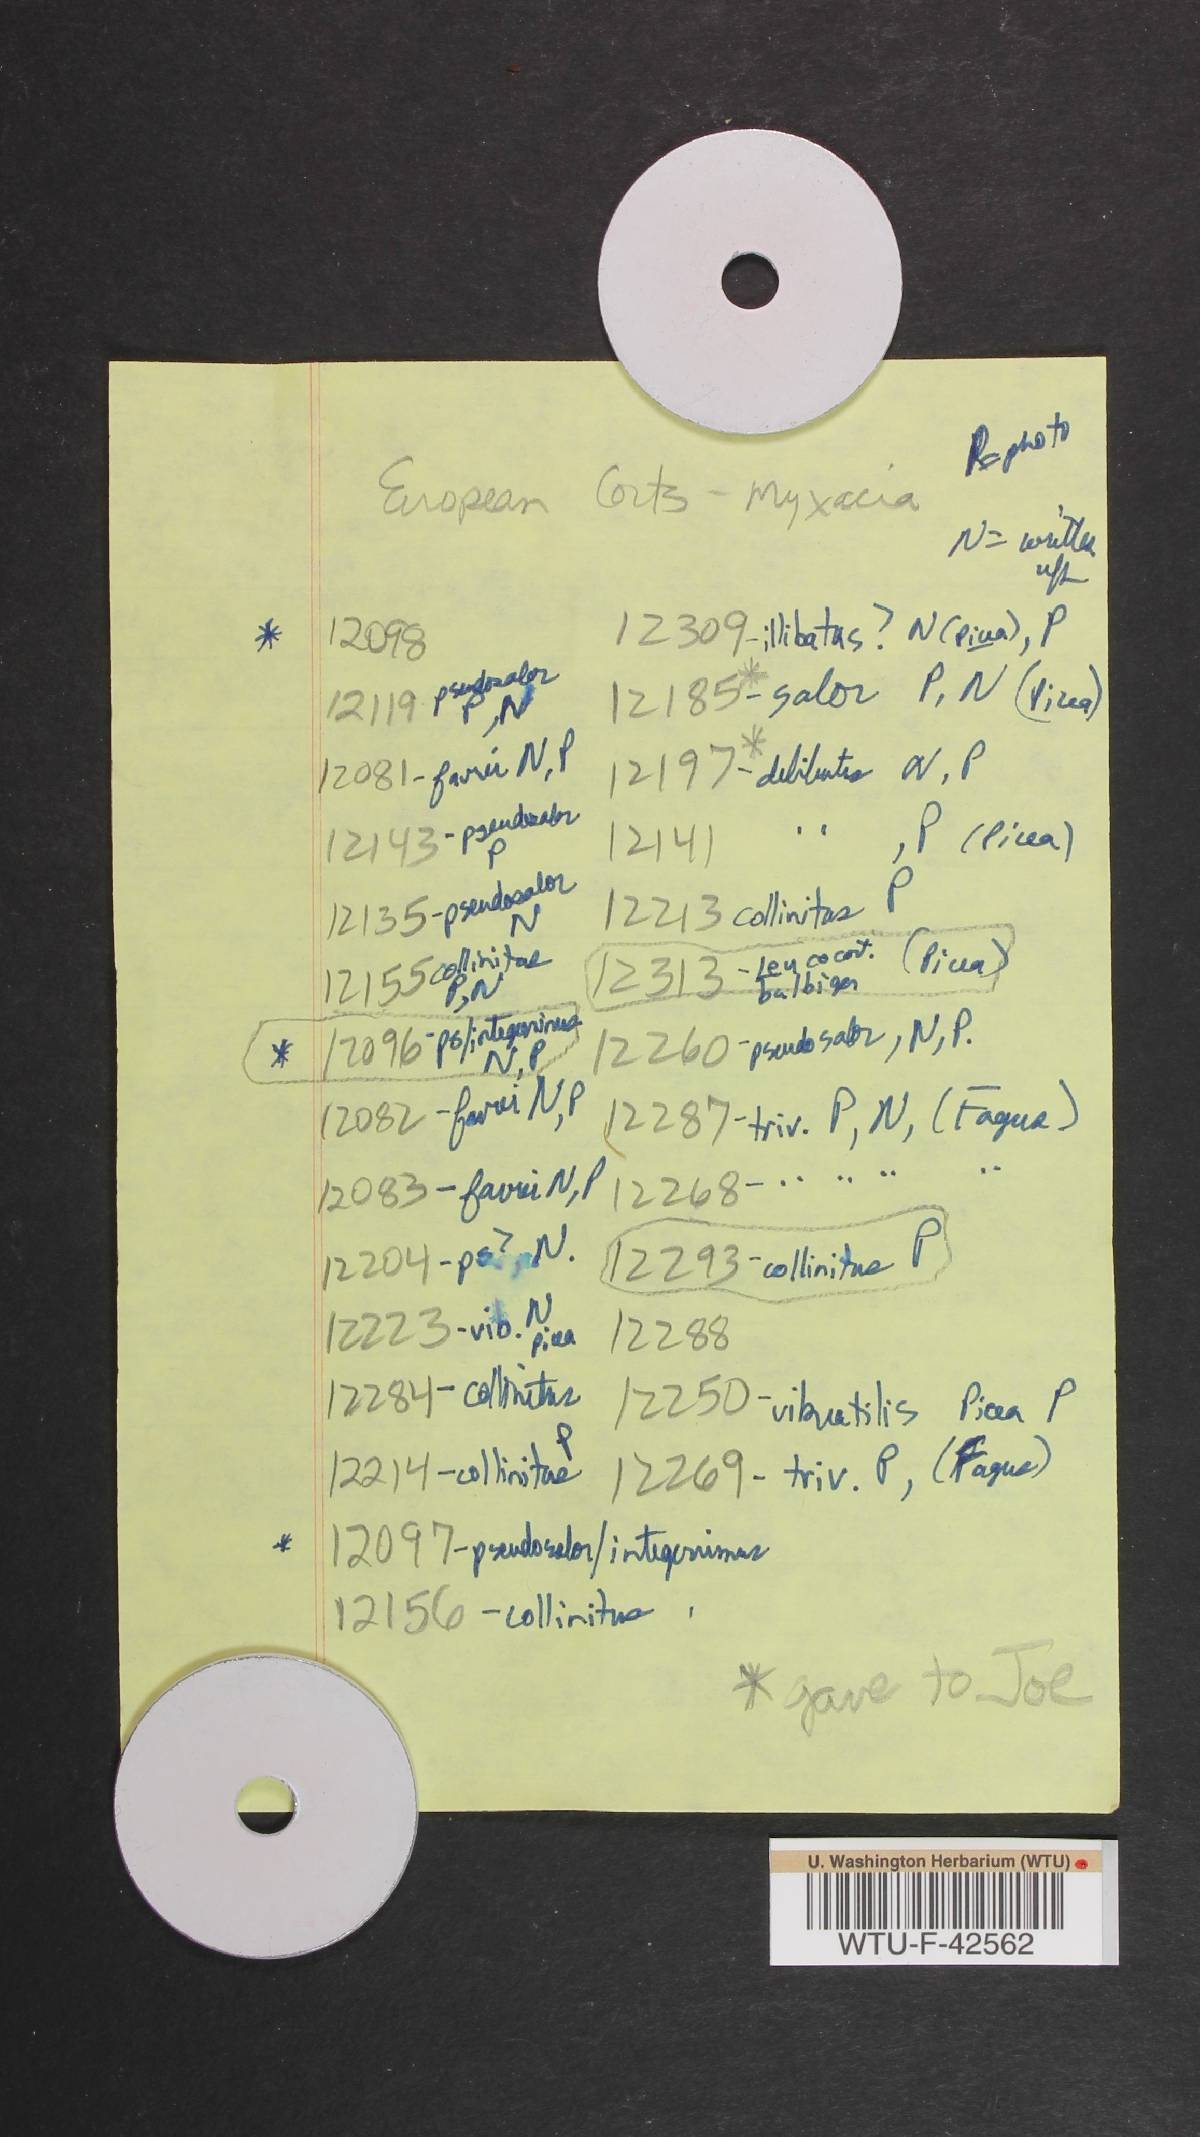 P=photo
European Corts - Myxacia
N= written
up
* 12098
12119 pseudosalor
P, N
12081- favrei N, P
12143- pseudosalor
P
12135-pseudosalor
N
12155 collinitus
P, N
* 12096-ps/integerrimus
N, P
12082 -favrei N, P
12083 - favrei N, P
12204 - ps? N.
12223 -vib. N
picea
12284- collinitus
12214 -collinitus P
* 12097-pseudosalor/integerrimus
12156 -collinitus
12309-illibatus? N (picea), P
12185*- salor P, N (Picea)
12197*- delibutus N, P
12141 " , P (Picea)
12213 collinitus P
12313 -Leucocort. (Picea)
bulbiger
12260 -pseudosalor, N, P.
12287-triv. P, N, (Fagus)
12268- " " " "
12293-collinitus P
12288
12250 -vibratilis Picea P
12269 - triv. P, (Fagus)
* gave to Joe
U. Washington Herbarium (WTU)
WTU-F-42562